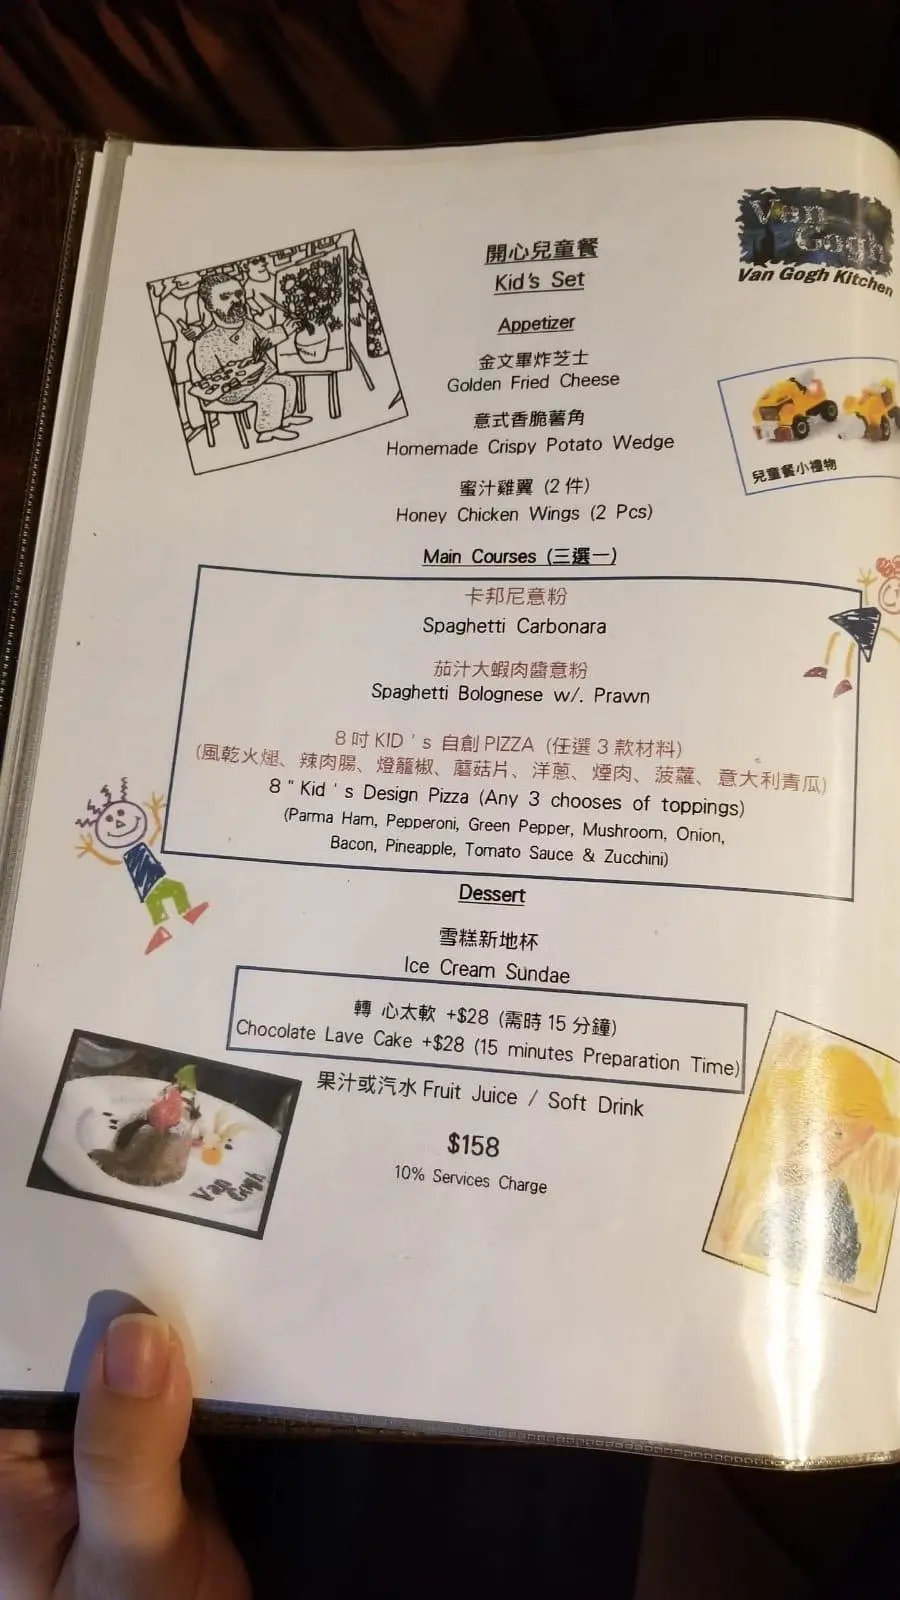 Van Gogh
Van Gogh Kitchen
開心兒童餐
Kid's Set
Appetizer
金文畢炸芝士
Golden Fried Cheese
意式香脆薯角
Homemade Crispy Potato Wedge
蜜汁雞翼 (2 件)
Honey Chicken Wings (2 Pcs)
兒童餐小禮物
Main Courses (三選一)
卡邦尼意粉
Spaghetti Carbonara
茄汁大蝦肉醬意粉
Spaghetti Bolognese w/. Prawn
8 吋 KID ' s 自創 PIZZA (任選 3 款材料)
(風乾火腿、辣肉腸、燈籠椒、蘑菇片、洋蔥、煙肉、菠蘿、意大利青瓜)
8 " Kid ' s Design Pizza (Any 3 chooses of toppings)
(Parma Ham, Pepperoni, Green Pepper, Mushroom, Onion,
Bacon, Pineapple, Tomato Sauce & Zucchini)
Dessert
雪糕新地杯
Ice Cream Sundae
轉 心太軟 +$28 (需時 15 分鐘)
Chocolate Lave Cake +$28 (15 minutes Preparation Time)
果汁或汽水 Fruit Juice / Soft Drink
$158
10% Services Charge
Van Gogh